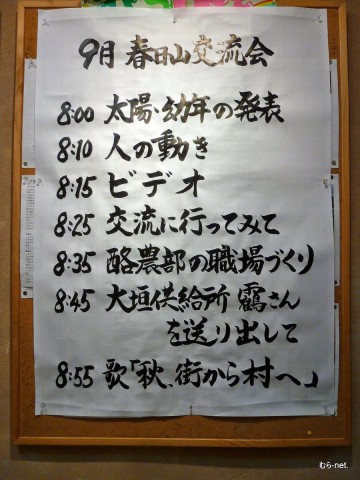 9月 春日山交流会
8:00 太陽・幼年の発表
8:10 人の動き
8:15 ビデオ
8:25 交流に行ってみて
8:35 酪農部の職場づくり
8:45 大垣供給所 靍さん
を送り出して
8:55 歌「秋、街から村へ」
むら-net.